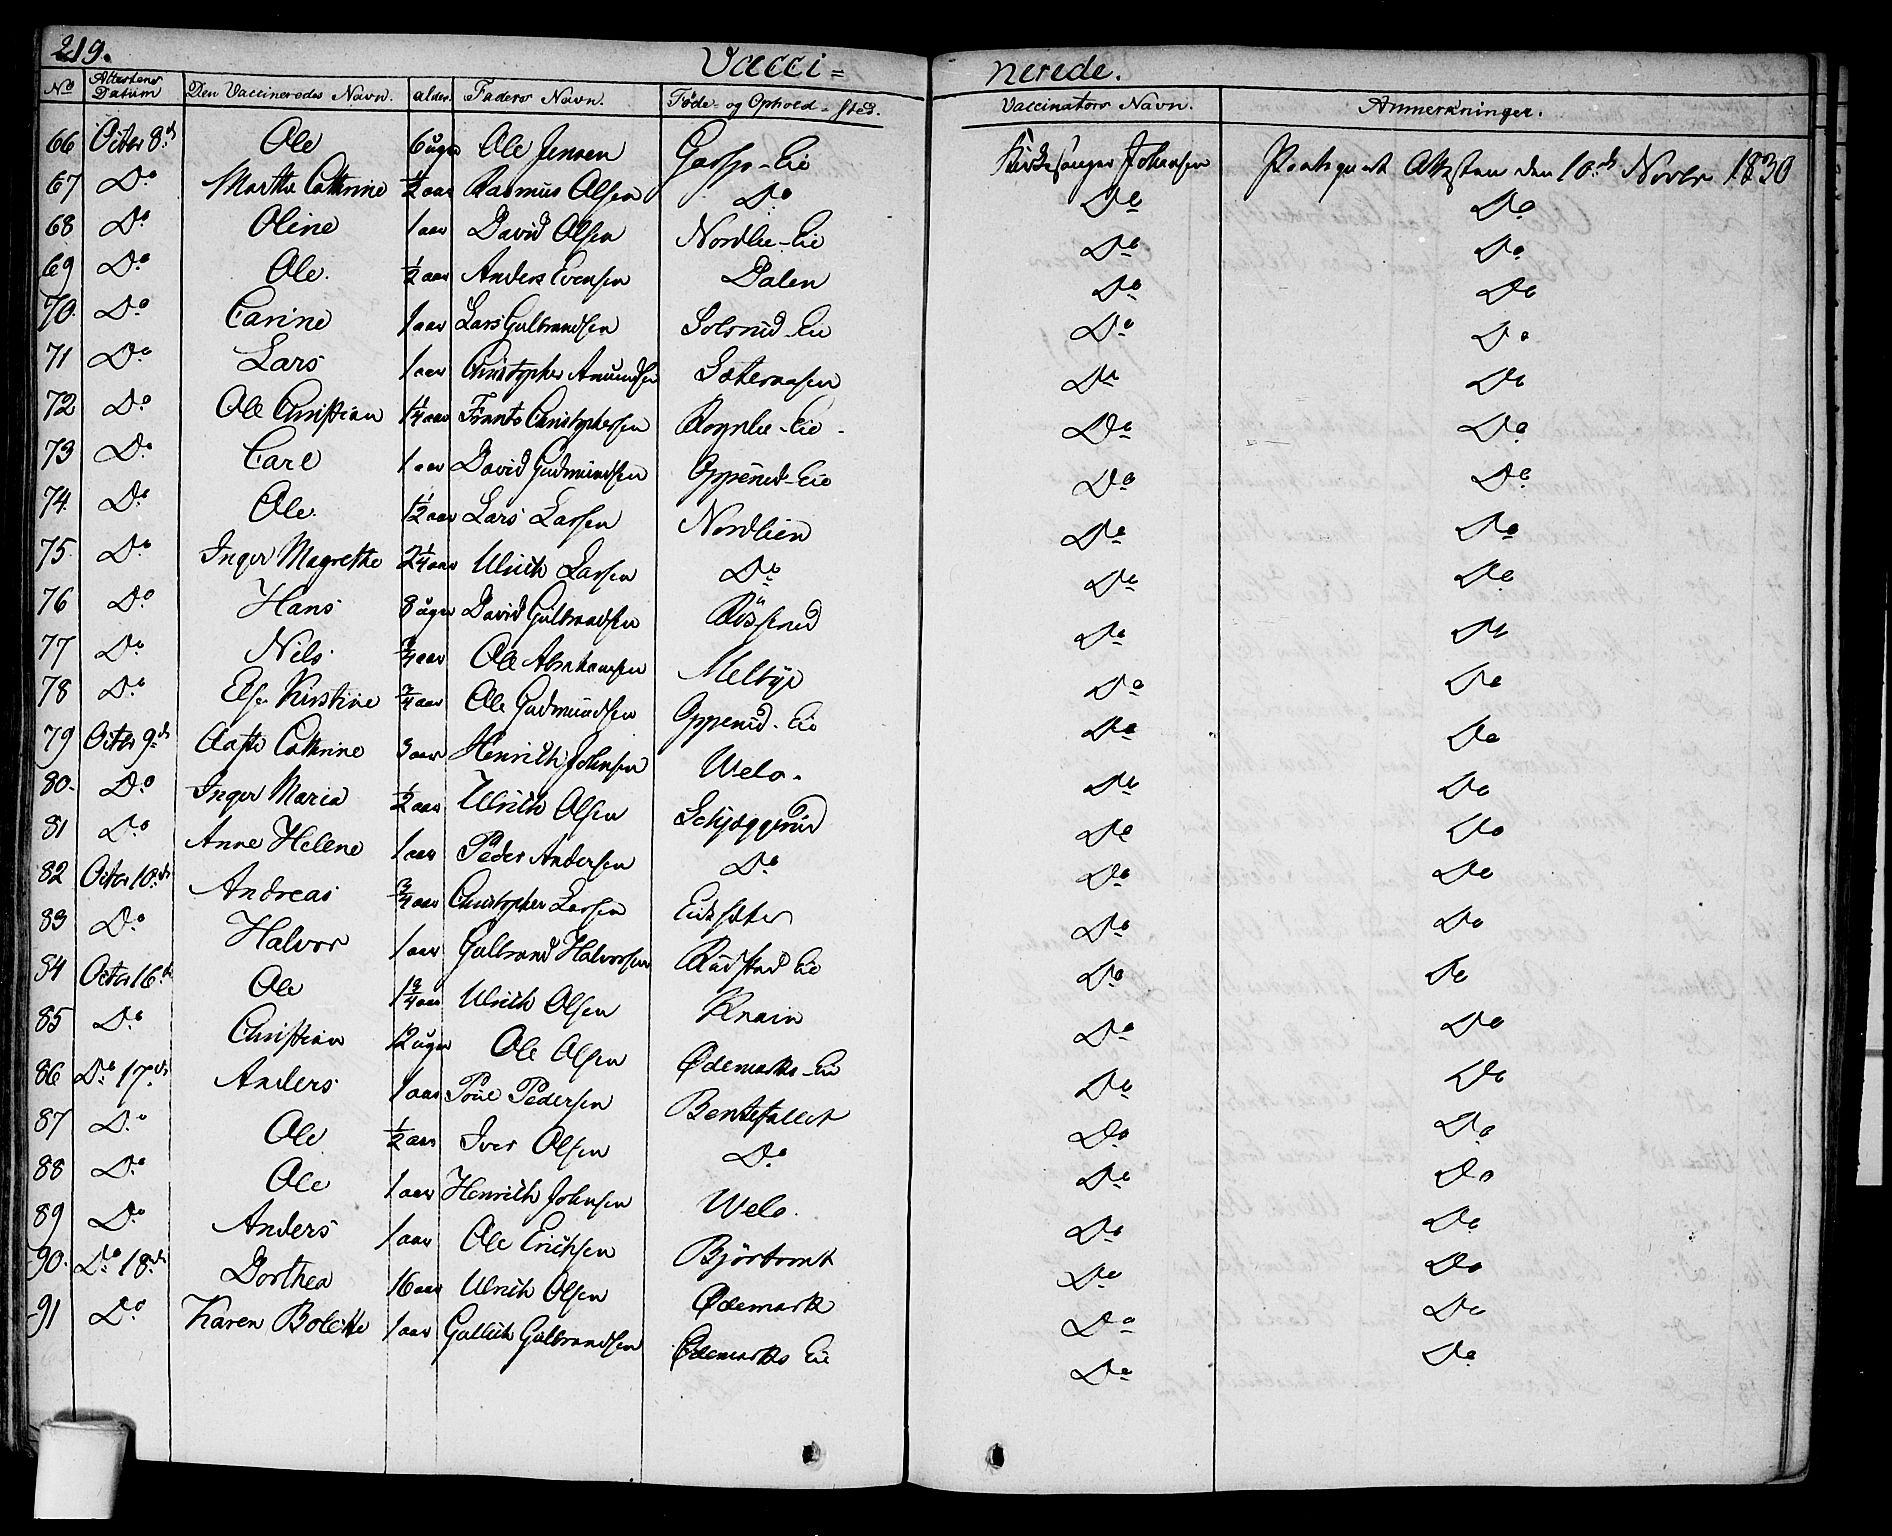 219. Vacci= nerede.
No Attestens Datum Den Vaccineredes Navn. alder. Faders Navn. Føde- og Ophold-sted. Vaccinators Navn. Anmerkninger.
66 Octbr 8de Ole 6 uger Ole Jensen -Eie Kirkesanger Johansen Attesten den 10de Novbr 1830
67 Do Marthe Cathrine ½ aar Rasmus Olsen Do Do Do
68 Do Oline 1 aar David Olsen Nordlie-Eie Do Do
69 Do Ole ½ aar Anders Evensen Dalen Do Do
70. Do Carine 1 aar Lars Gulbrandsen Solerud-Eie Do Do
71 Do Lars 1 aar Christopher Amundsen Sæteraasen Do Do
72 Do Ole Christian 1¼ aar Frants Christophersen Rognlie-Eie Do Do
73 Do Carl 1 aar David Gudmundsen Opperud-Eie Do Do
74. Do Ole 1½ aar Lars Larsen Nordlien Do Do
75. Do Inger Magrethe 2¼ aar Ulrich Larsen Do Do Do
76 Do Hans 8 uger David Gulbrandsen Do Do
77 Do Nils ¾ aar Ole Abrahamsen Meltvp Do Do
78 Do Else Kirstine ¾ aar Ole Gudmundsen Opperud-Eie Do Do
79 Octbr 9de Aaste Cathrine 3 aar Henrich Johnsen Welo. Do Do
80. Do Inger Maria ½ aar Ulrich Olsen Schjæggerud Do Do
81 Do Anne Helene 1 aar Peder Andersen Do Do Do
82 Octbr 10de Andreas ¾ aar Christopher Larsen Eidsæter Do Do
83 Do Halvor 1 aar Gulbrand Halvorsen Rudstad Eie Do Do
84 Octbr 16de Ole 1¾ aar Ulrich Olsen Knain Do Do
85 Do Christian 12 uger Ole Olsen Ødemarks-Eie Do Do
86 Do 17de Anders 1 aar Poul Pedersen Bentefallet Do Do
87 Do Ole ½ aar Iver Olsen Do Do Do
88 Do Ole 1 aar Henrich Johnsen Welo. Do Do
89 Do Anders 1 aar Ole Erichsen Bjørtomt Do Do
90. Do 18de Dorthea 16 aar Ulrich Olsen Ødemark Do Do
91 Do Karen Bolette 1 aar Gullich Gulbrandsen Ødemarks Eie Do Do